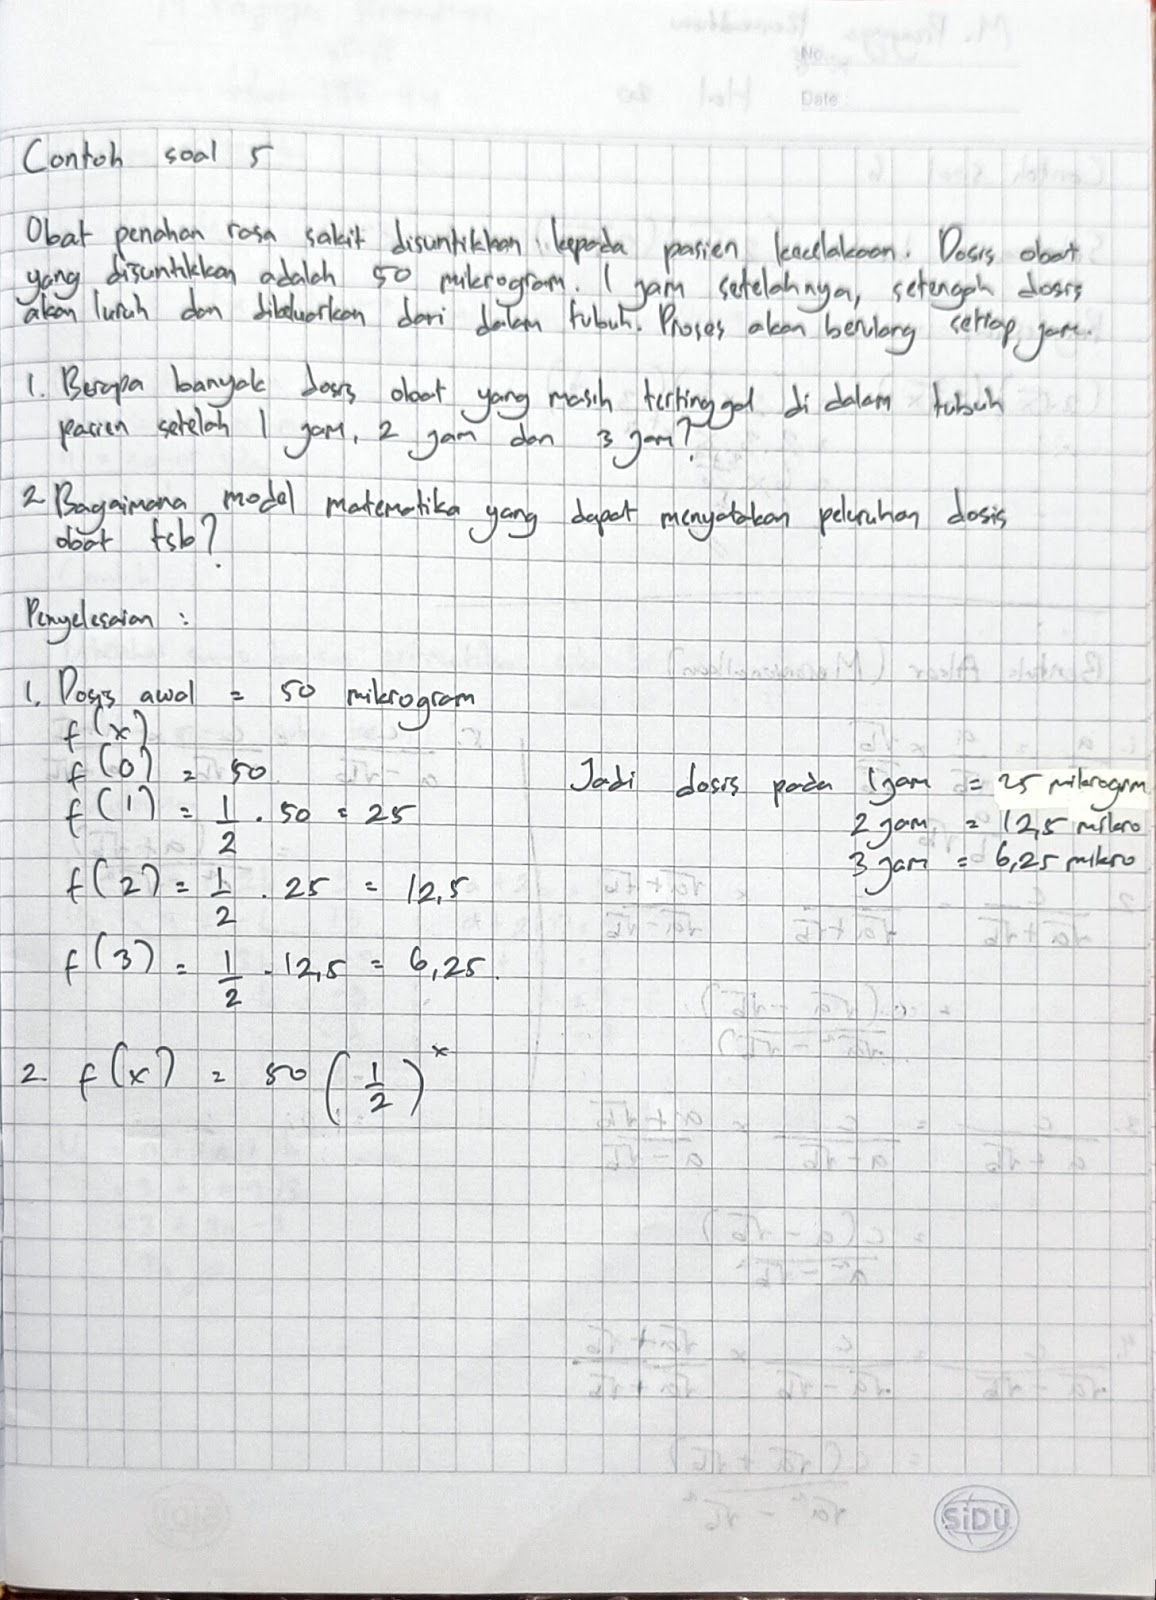 No
Date
Contoh soal 5
Obat penahan rasa sakit disuntikkan kepada pasien kecelakaan. Dosis obat
yang disuntikkan adalah 50 mikrogram. 1 jam setelahnya, setengah dosis
akan luruh dan dikeluarkan dari dalam tubuh. Proses akan berulang setiap jam.
1. Berapa banyak dosis obat yang masih tertinggal di dalam tubuh
pasien setelah 1 jam, 2 jam dan 3 jam?
2 Bagaimana model matematika yang dapat menyatakan peluruhan dosis
obat tsb?
Penyelesaian :
1. Dosis awal = 50 mikrogram
f(x)
f(0) = 50
f(1) = 1/2 . 50 = 25
f(2) = 1/2 . 25 = 12,5
f(3) = 1/2 . 12,5 = 6,25.
Jadi dosis pada 1 jam = 25 mikrogrm
2 jam = 12,5 mikro
3 jam = 6,25 mikro
2. f(x) = 50 (1/2)^x
SiDU